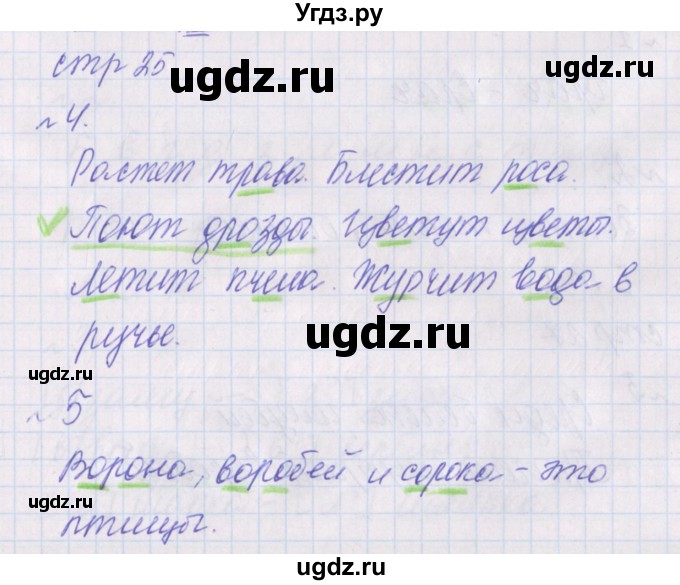 Угдз.ру
стр 25
ugdz.ru
№4.
ugdz.ru
Растет трава. Блестит роса.
Поют дрозды. Цветут цветы.
Летит пчела. Журчит вода в
ручье.
ugdz.ru
ugdz.ru
№5
ugdz.ru
Ворона, воробей и сорока – это
птицы.
ugdz.ru
ugdz.ru
Угдз.ру